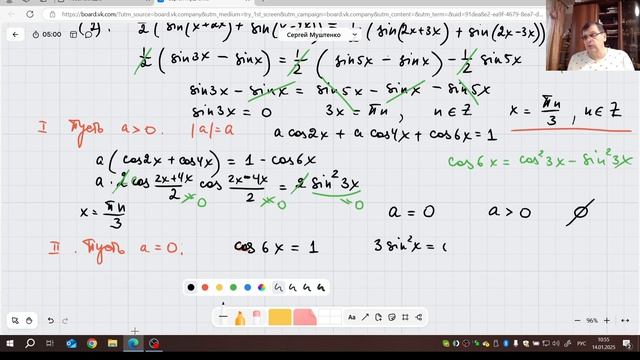 https://board.vk.company/?utm_source=board.vk.company&utm_medium=try_1st_screen&utm_campaign=board.vk.company&utm_content=&utm_term=&uid=91dea8e2-ea9f-4679-8ea7-d...
05:00
Сергей Муштенко
2(sin(x+2x)+ = 1/2 (sin(2x+3x) + sin(2x-3x))
1/2 (sin3x - sinx) = 1/2 (sin5x - sinx) - 1/2 sin5x
sin3x - sinx = sin5x - sinx - sin5x
sin3x = 0 3x = πn, n∈Z x = πn/3, n∈Z
I Пусть a>0. |a|=a a cos2x + a cos4x + cos6x = 1
a(cos2x + cos4x) = 1 - cos6x cos6x = cos²3x - sin²3x
a·2cos (2x+4x)/2 cos (2x-4x)/2 = 2 sin²3x
x = πn/3 ≠0 ≠0 =0 a = 0 a > 0 ∅
II. Пусть a=0. cos6x = 1 3sin²x = (
Aa
96%
РУС
10:55
14.01.2025